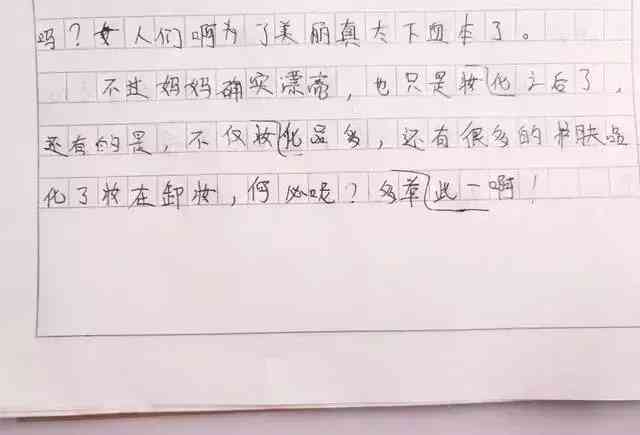 吗？女人们啊为了美丽真太下血本了。
不过妈妈确实漂亮，也只是妆化之后了，
还有的是，不仅妆化品多，还有很多的护肤品
化了妆在卸妆，何必呢？多举此一啊！